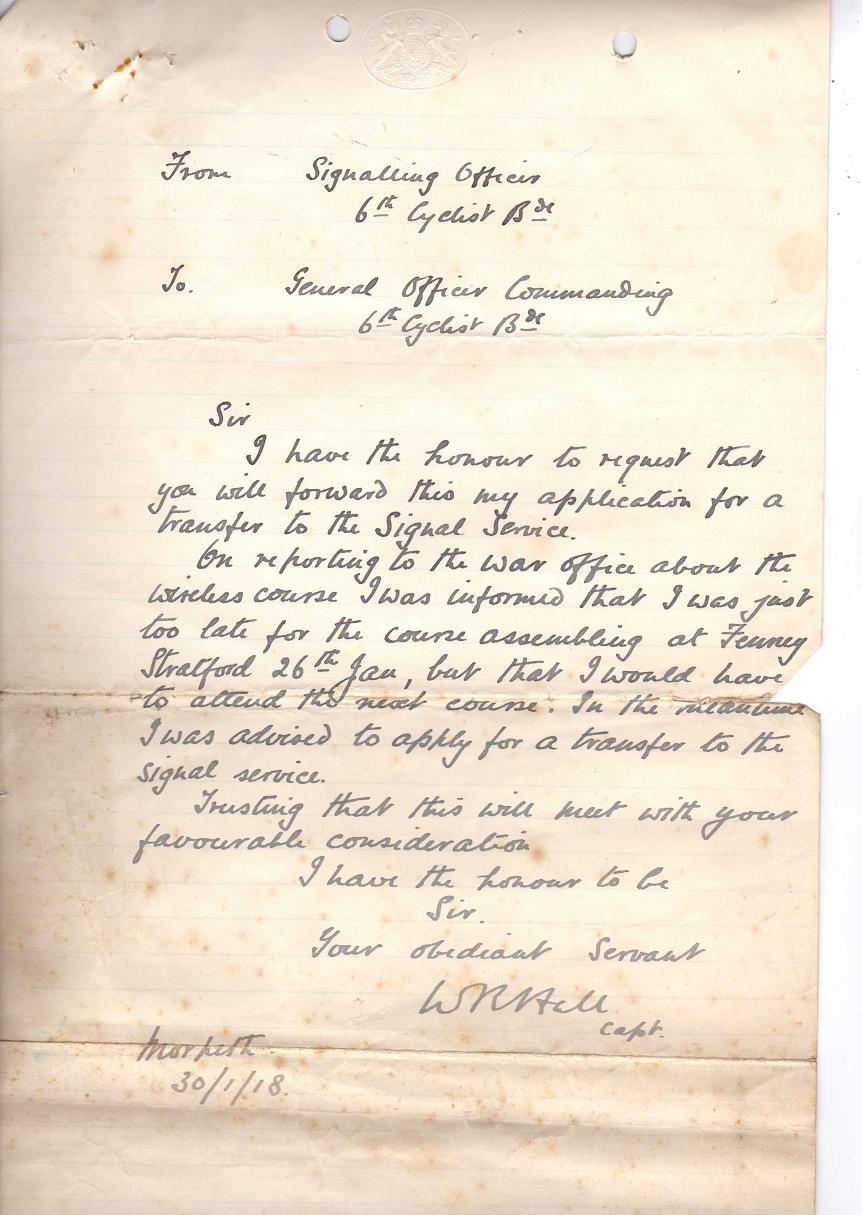 From Signalling Officer
6th Cyclist Bde
To. General Officer Commanding
6th Cyclist Bde
Sir
I have the honour to request that
you will forward this my application for a
transfer to the Signal Service.
On reporting to the war office about the
wireless course I was informed that I was just
too late for the course assembling at Fenney
Stratford 26th Jan, but that I would have
to attend the next course. In the meantime
I was advised to apply for a transfer to the
signal service.
Trusting that this will meet with your
favourable consideration
I have the honour to be
Sir.
Your obediant Servant
W R Hall
Capt.
Morpeth.
30/1/18.